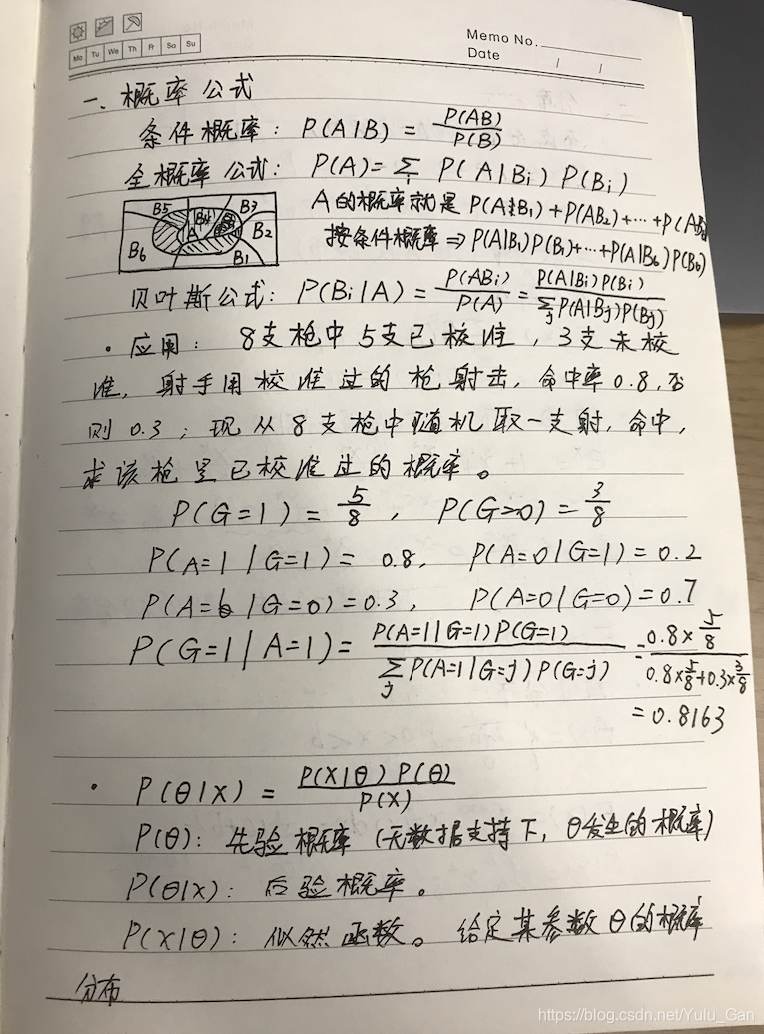 Memo No.
Mo Tu We Th Fr Sa Su
Date / /
一、概率公式
条件概率: P(A|B) = P(AB) / P(B)
全概率公式: P(A)=∑i P(A|Bi) P(Bi)
B5 B4 B3 B6 A B2 B1
A的概率就是 P(AB1)+P(AB2)+…+P(AB6)
按条件概率 ⇒ P(A|B1)P(B1)+…+P(A|B6)P(B6)
贝叶斯公式: P(Bi|A) = P(ABi) / P(A) = P(A|Bi)P(Bi) / ∑j P(A|Bj)P(Bj)
· 应用: 8支枪中5支已校准,3支未校
准,射手用校准过的枪射击,命中率0.8,否
则0.3;现从8支枪中随机取一支射,命中,
求该枪是已校准过的概率。
P(G=1) = 5/8 , P(G=0) = 3/8
P(A=1|G=1) = 0.8, P(A=0|G=1) = 0.2
P(A=1|G=0) = 0.3, P(A=0|G=0) = 0.7
P(G=1|A=1) = P(A=1|G=1)P(G=1) / ∑j P(A=1|G=j)P(G=j) = 0.8×5/8 / 0.8×5/8+0.3×3/8
= 0.8163
· P(θ|x) = P(x|θ) P(θ) / P(x)
P(θ): 先验概率(无数据支持下,θ发生的概率)
P(θ|x): 后验概率。
P(x|θ): 似然函数。给定某参数θ的概率
分布
https://blog.csdn.net/Yulu_Gan